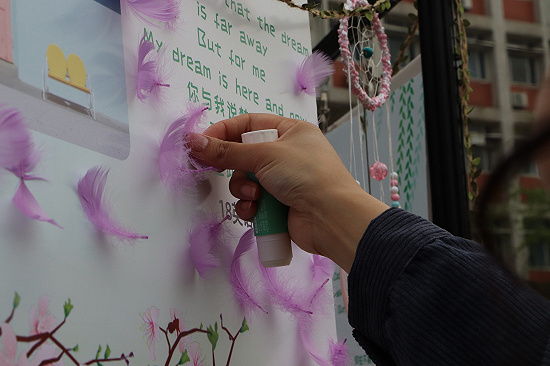 that the dream
is far away
But for me
My dream is here and
你与我说
18